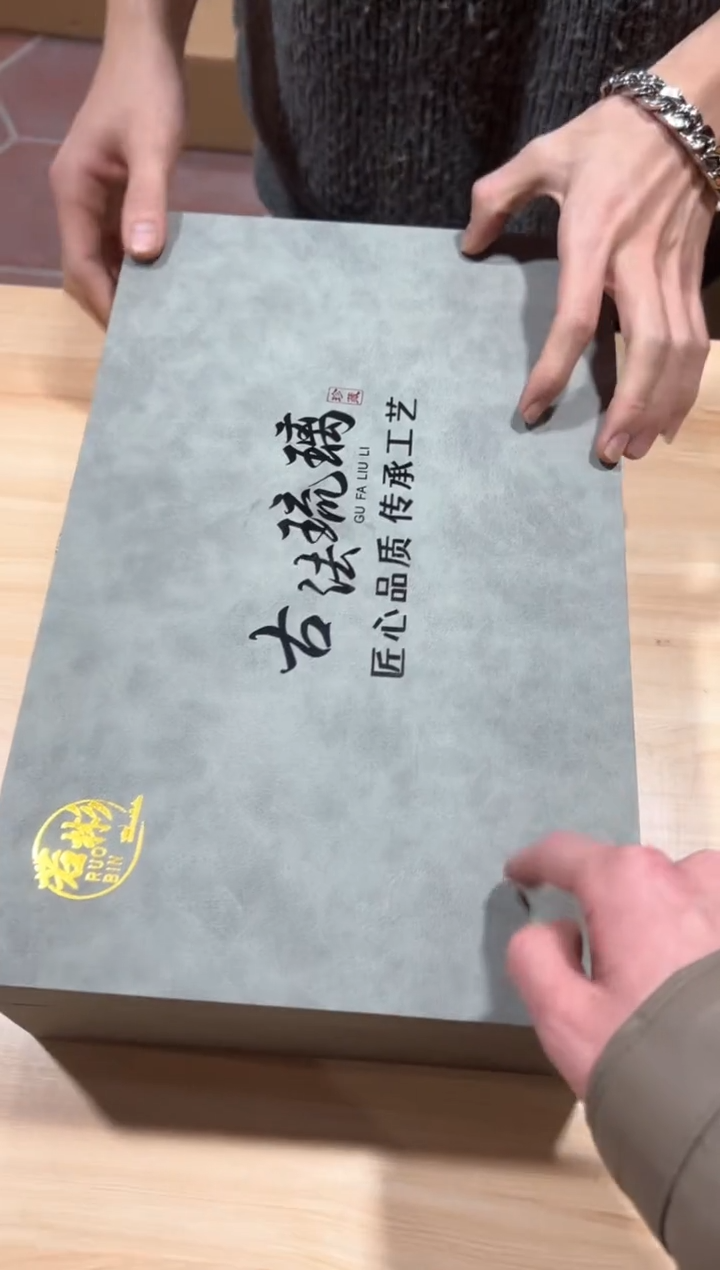 古法琉璃
珍藏
GU FA LIU LI
匠心品质 传承工艺
若彬
RUO
BIN